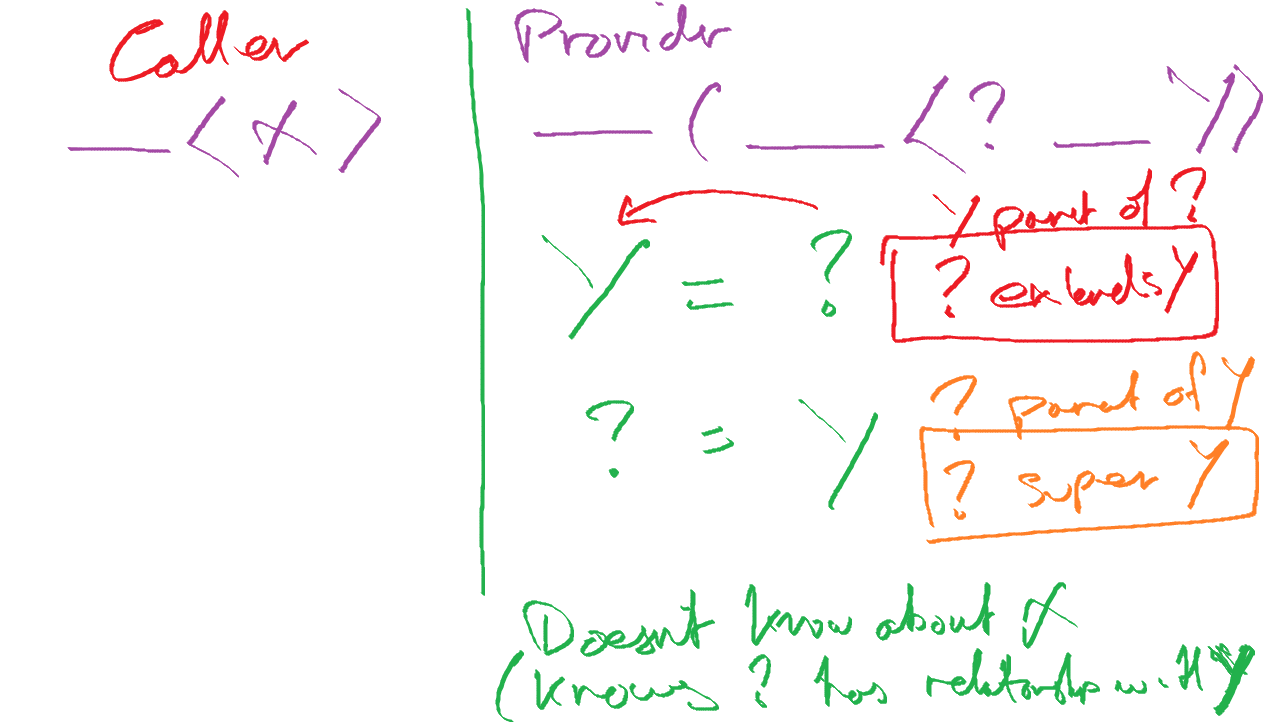 Caller
__<X>
Provider
__(__<? __ Y>)
Y = ?
Y parent of ?
? extends Y
? = Y
? parent of Y
? super Y
Doesnt know about X
(knows ? has relationship with Y